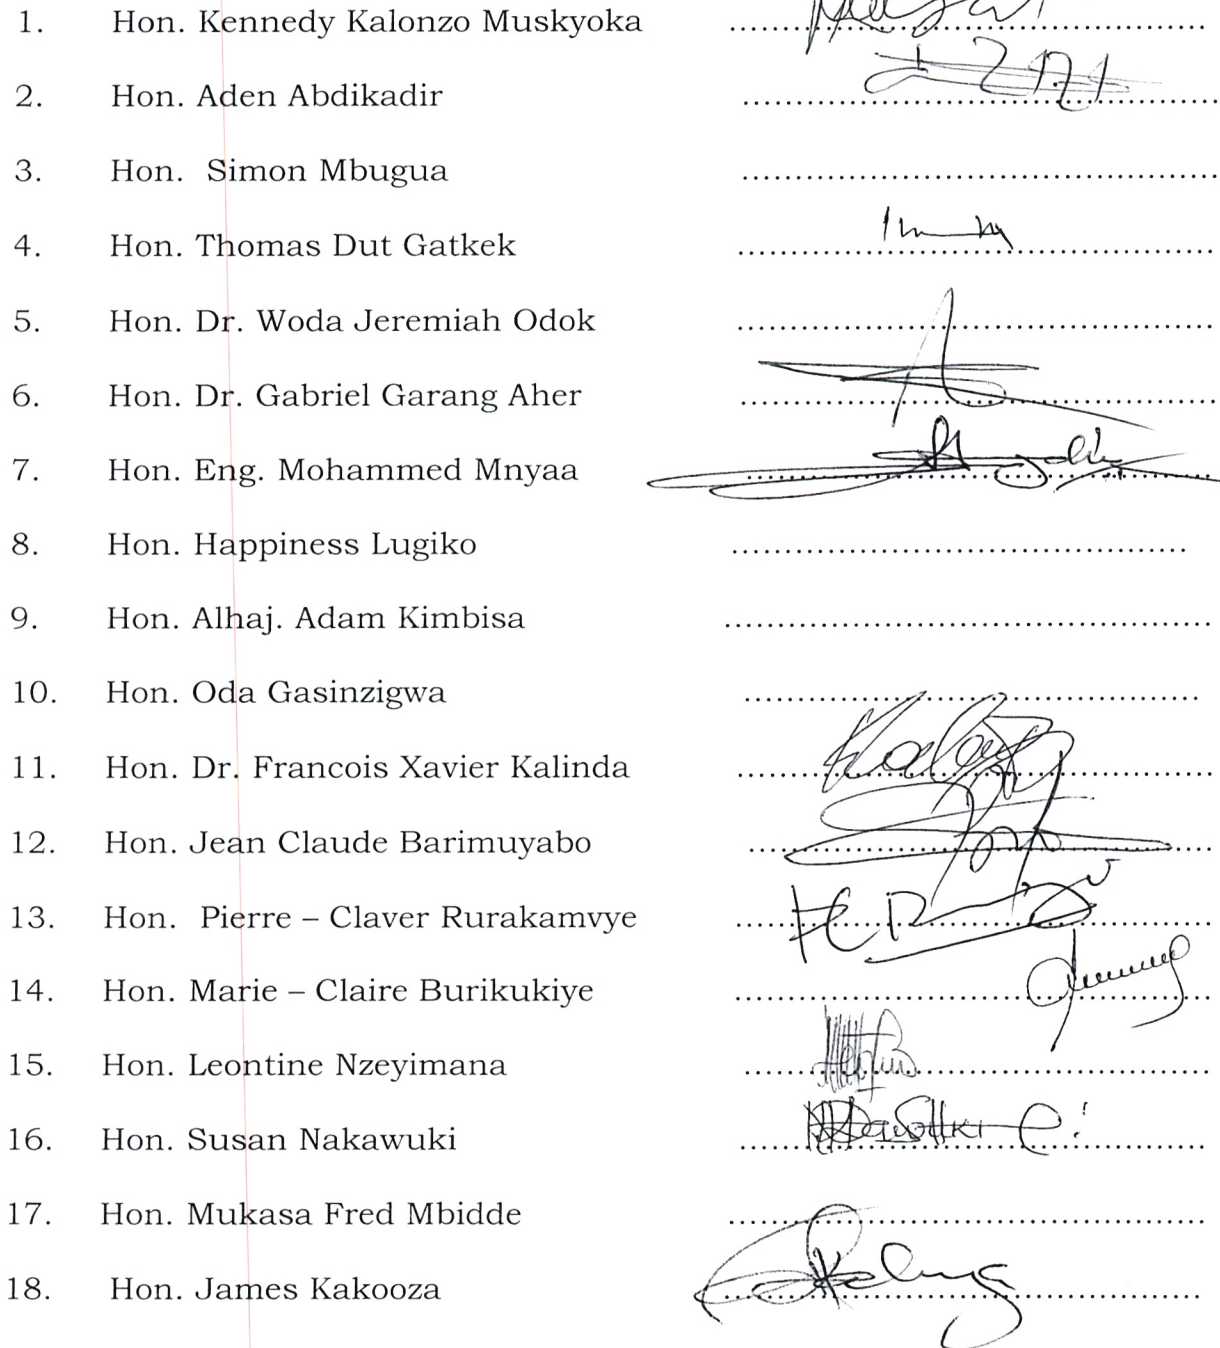 1. Hon. Kennedy Kalonzo Muskyoka ........................................
2. Hon. Aden Abdikadir ........................................
3. Hon. Simon Mbugua ........................................
4. Hon. Thomas Dut Gatkek ........................................
5. Hon. Dr. Woda Jeremiah Odok ........................................
6. Hon. Dr. Gabriel Garang Aher ........................................
7. Hon. Eng. Mohammed Mnyaa ........................................
8. Hon. Happiness Lugiko ........................................
9. Hon. Alhaj. Adam Kimbisa ........................................
10. Hon. Oda Gasinzigwa ........................................
11. Hon. Dr. Francois Xavier Kalinda ........................................
12. Hon. Jean Claude Barimuyabo ........................................
13. Hon. Pierre – Claver Rurakamvye ........................................
14. Hon. Marie – Claire Burikukiye ........................................
15. Hon. Leontine Nzeyimana ........................................
16. Hon. Susan Nakawuki ........................................
17. Hon. Mukasa Fred Mbidde ........................................
18. Hon. James Kakooza ........................................